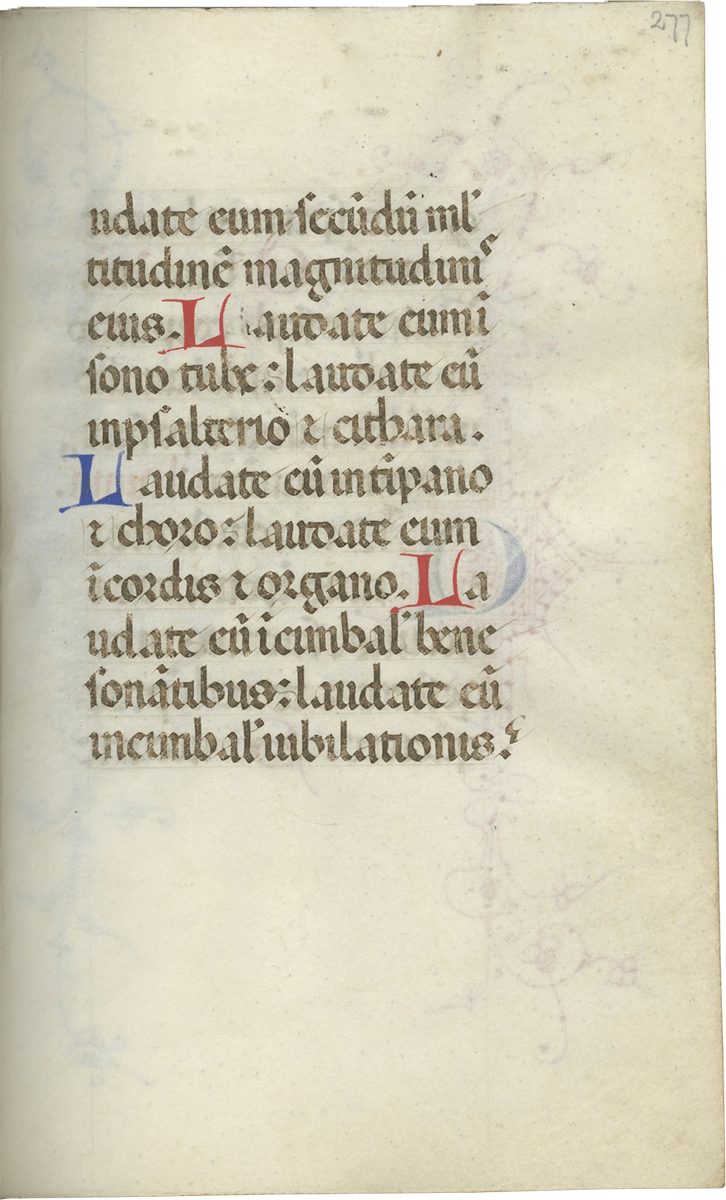 277
udate eum secūdū ml'
titudinē magnitudinis
eius. Laudate eum ī
sono tube: laudate eū
in psalterio ⁊ cithara.
Laudate eū in tīpano
⁊ choro: laudate eum
ī cordis ⁊ organo. La
udate eū ī cimbal' bene
sonātibus: laudate eū
in cimbal' iubilationis: